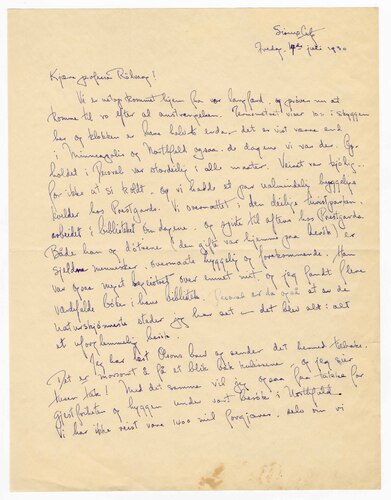 Sioux City
Fredag, 4de juli 1930
Kjære professor Rölvaag!
Vi er netop kommet hjem fra vor langfærd, og prøver nu at
komme til ro efter al anstrengelsen. Termometret viser 100 i skyggen
her og klokken er bare halv ti enda - det er vist varme end
i Minneapolis og Northfield ogsaa de dagene vi var der. Op-
holdet i Decorah var storartet i alle maater. Veiret var kjølig -
for ikke at si koldt - og vi hadde et par ualmindelig hyggelige
kvelder hos Prestgards. Vi overnattet i den deilige turistparken,
arbeidet i biblioteket om dagene, og spiste til aftens hos Prestgards.
Både han og datteren (den gifte var hjemme paa besøk) er
sjeldne mennesker, - overmaate hyggelig og forekommende. Han
var ogsaa meget begeistret over emnet mit og jeg fandt flere
værdifulde bøker i hans bibliotek. Decorah er da også et av de
naturskjønneste steder jeg har set - det blev alt i alt
et uforglemmelig besøk.
Jeg har læst Olsons brev og sender det herved tilbake.
Det er morsomt å få et blik bak kulissene - og jeg sier
tusen tak! Med det samme vil jeg ogsaa faa takke for
gjestfriheten og hyggen under vort besøk i Northfield.
Vi har ikke reist vore 1400 mil forgjæves, selv om vi